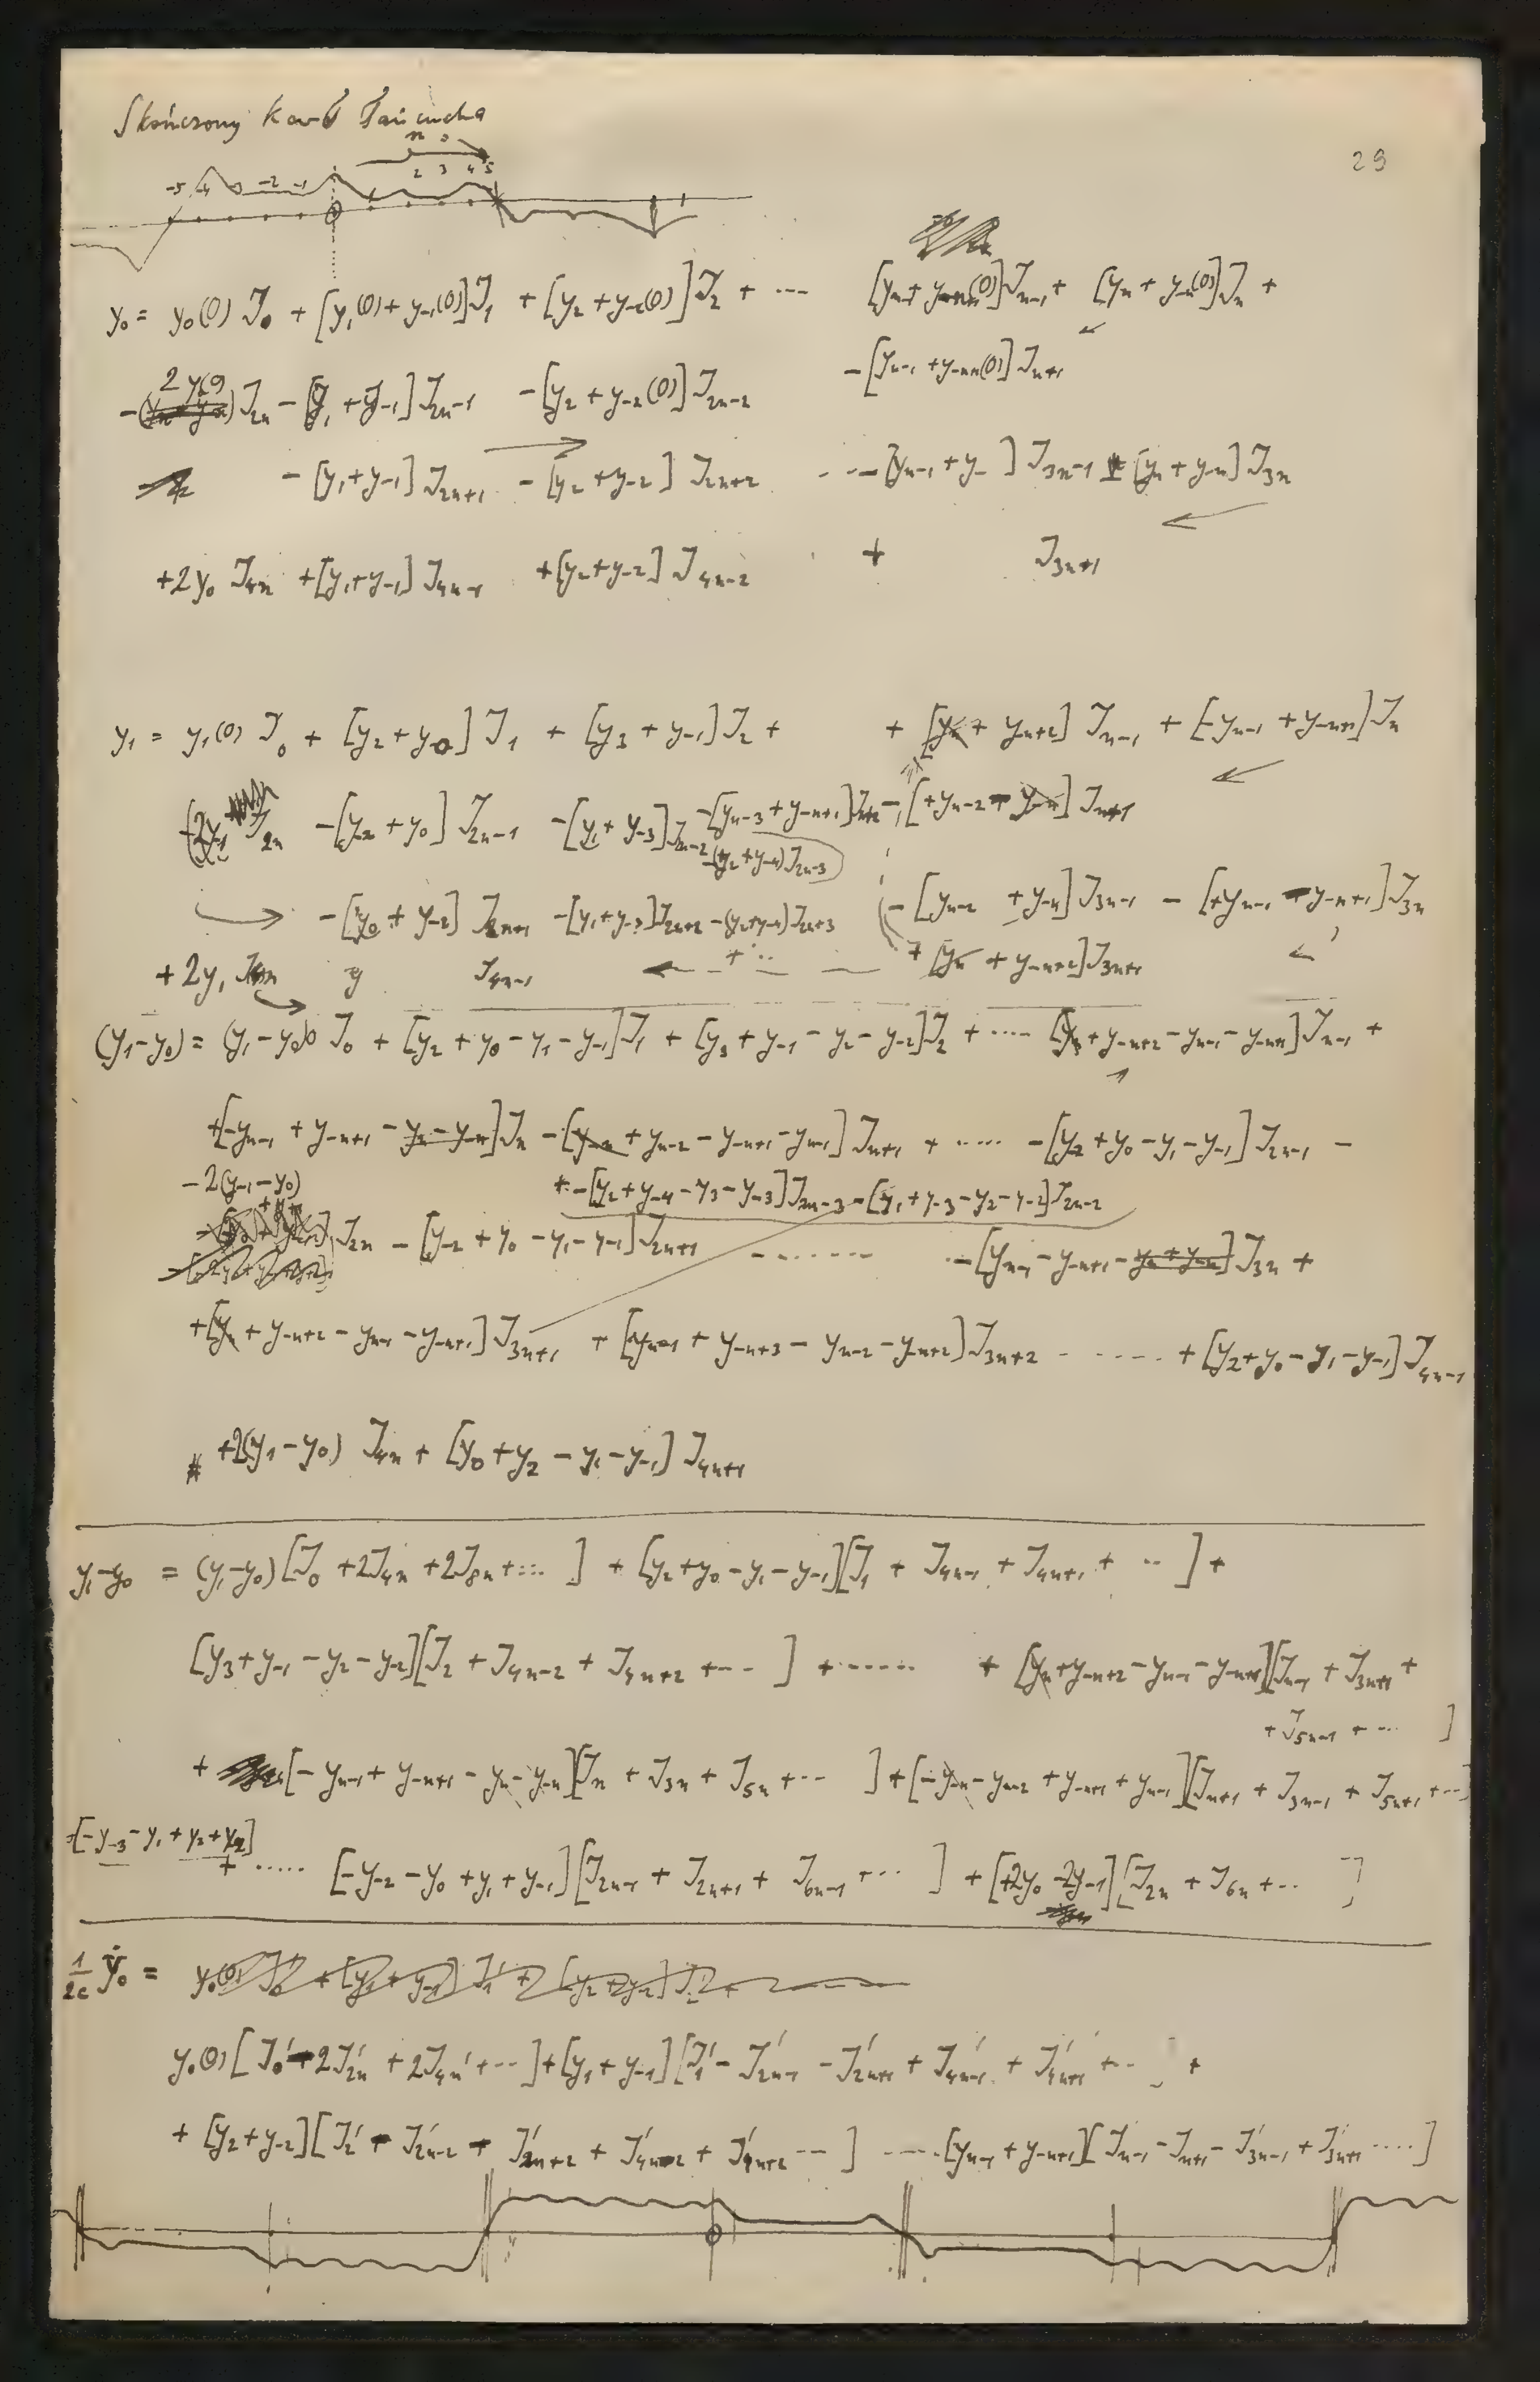 Skończony kawał łańcucha
29
n
-5 -4 -3 -2 -1 0 2 3 4 5
y₀ = y₀(0) J₀ + [y₁(0) + y₋₁(0)]J₁ + [y₂ + y₋₂(0)]J₂ + ···· [yₙ₋₁ + y₋ₙ₊₁(0)]Jₙ₋₁ + [yₙ + y₋ₙ(0)]Jₙ +
- [yₙ₋₁ + y₋ₙ₊₁(0)] Jₙ₊₁
- 2y₀(0) J₂ₙ - [y₁ + y₋₁] J₂ₙ₋₁ - [y₂ + y₋₂(0)] J₂ₙ₋₂
- [y₁ + y₋₁] J₂ₙ₊₁ - [y₂ + y₋₂] J₂ₙ₊₂ ··· - [yₙ₋₁ + y₋ ] J₃ₙ₋₁ ± [yₙ + y₋ₙ] J₃ₙ
+ 2y₀ J₄ₙ + [y₁ + y₋₁] J₄ₙ₋₁ + [y₂ + y₋₂] J₄ₙ₋₂ + J₃ₙ₊₁
y₁ = y₁(0) J₀ + [y₂ + y₀] J₁ + [y₃ + y₋₁] J₂ + + [yₙ + y₋ₙ₊₂] Jₙ₋₁ + [-yₙ₋₁ + y₋ₙ₊₁] Jₙ
-(2y₋₁ J₂ₙ - [y₋₂ + y₀] J₂ₙ₋₁ - [y₁ + y₋₃] J₂ₙ₋₂ - [yₙ₋₃ + y₋ₙ₊₁] Jₙ₊₂ - [+yₙ₋₂ + y₋ₙ] Jₙ₊₁
-(y₂ + y₋₄) J₂ₙ₋₃
- [y₀ + y₋₂] J₂ₙ₊₁ - [y₁ + y₋₃] J₂ₙ₊₂ - (y₂ + y₋₄) J₂ₙ₊₃ - [yₙ₋₂ + y₋ₙ] J₃ₙ₋₁ - [+yₙ₋₁ - y₋ₙ₊₁] J₃ₙ
+ 2y₁ J₄ₙ y J₄ₙ₋₁ + ·· + [yₙ + y₋ₙ₊₂] J₃ₙ₊₁
(y₁-y₀) = (y₁-y₀)0 J₀ + [y₂ + y₀ - y₁ - y₋₁] J₁ + [y₃ + y₋₁ - y₂ - y₋₂] J₂ + ···· [yₙ + y₋ₙ₊₂ - yₙ₋₁ - y₋ₙ₊₁] Jₙ₋₁ +
+ [-yₙ₋₁ + y₋ₙ₊₁ - yₙ - y₋ₙ] Jₙ - [y₋ₙ + yₙ₋₂ - y₋ₙ₊₁ - yₙ₋₁] Jₙ₊₁ + ···· - [y₂ + y₀ - y₁ - y₋₁] J₂ₙ₋₁ -
- 2(y₋₁ - y₀) + - [y₂ + y₋₄ - y₃ - y₋₃] J₂ₙ₋₃ - [y₁ + y₋₃ - y₂ - y₋₂] J₂ₙ₋₂
J₂ₙ - [y₋₂ + y₀ - y₁ - y₋₁] J₂ₙ₊₁ - ······ - [yₙ₋₁ - y₋ₙ₊₁ - yₙ + y₋ₙ] J₃ₙ +
+ [yₙ + y₋ₙ₊₂ - yₙ₋₁ - y₋ₙ₊₁] J₃ₙ₊₁ + [yₙ₋₁ + y₋ₙ₊₃ - yₙ₋₂ - y₋ₙ₊₂] J₃ₙ₊₂ ····· + [y₂ + y₀ - y₁ - y₋₁] J₄ₙ₋₁
# + 2(y₁ - y₀) J₄ₙ + [y₀ + y₂ - y₁ - y₋₁] J₄ₙ₊₁
y₁-y₀ = (y₁-y₀) [J₀ + 2J₄ₙ + 2J₈ₙ + ··· ] + [y₂ + y₀ - y₁ - y₋₁][J₁ + J₄ₙ₋₁ + J₄ₙ₊₁ + ·· ] +
[y₃ + y₋₁ - y₂ - y₋₂][J₂ + J₄ₙ₋₂ + J₄ₙ₊₂ + ··· ] + ······ + [yₙ + y₋ₙ₊₂ - yₙ₋₁ - y₋ₙ₊₁][Jₙ₋₁ + J₃ₙ₊₁ +
+ J₅ₙ₋₁ + ··· ]
+ [- yₙ₋₁ + y₋ₙ₊₁ - yₙ - y₋ₙ][Jₙ + J₃ₙ + J₅ₙ + ··· ] + [-y₋ₙ - yₙ₋₂ + y₋ₙ₊₁ + yₙ₋₁][Jₙ₊₁ + J₃ₙ₋₁ + J₅ₙ₊₁ + ···]
+[-y₋₃ - y₁ + y₂ + y₋₂]
+ ····· [-y₋₂ - y₀ + y₁ + y₋₁][J₂ₙ₋₁ + J₂ₙ₊₁ + J₆ₙ₋₁ + ··· ] + [+2y₀ - 2y₋₁][J₂ₙ + J₆ₙ + ··· ]
1/2c ẏ₀ = y₀(0) J₀' + [y₁ + y₋₁] J₁' + [y₂ + y₋₂] J₂' +
y₀(0) [J₀' - 2J₂ₙ' + 2J₄ₙ' + ··· ] + [y₁ + y₋₁] [J₁' - J'₂ₙ₋₁ - J'₂ₙ₊₁ + J'₄ₙ₋₁ + J'₄ₙ₊₁ + ·· ] +
+ [y₂ + y₋₂][J₂' - J'₂ₙ₋₂ - J'₂ₙ₊₂ + J'₄ₙ₋₂ + J'₄ₙ₊₂ ··· ] ····· [yₙ₋₁ + y₋ₙ₊₁][J'ₙ₋₁ - J'ₙ₊₁ - J'₃ₙ₋₁ + J'₃ₙ₊₁ ····· ]